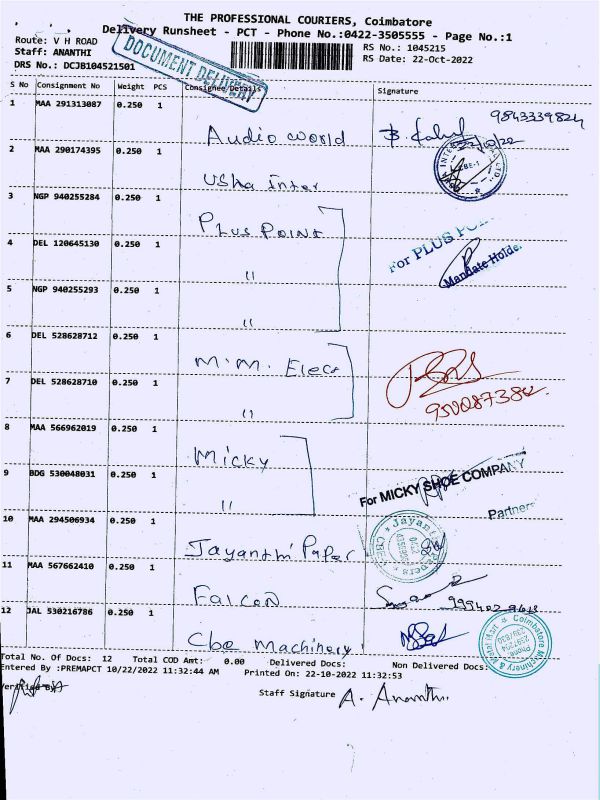 THE PROFESSIONAL COURIERS, Coimbatore
Delivery Runsheet - PCT - Phone No.:0422-3505555 - Page No.:1
Route: V H ROAD
Staff: ANANTHI
DRS No.: DCJB104521501
DOCUMENT DELIVERY
RS No.: 1045215
RS Date: 22-Oct-2022
S No Consignment No Weight PCS Consignee/Details Signature
1 MAA 291313087 0.250 1 Audio world 9843339824
22/10/22
2 MAA 290174395 0.250 1 Usha Inter
3 NGP 940255284 0.250 1 Plus Point
For PLUS
4 DEL 120645130 0.250 1 "
Mandate Holde
5 NGP 940255293 0.250 1 "
6 DEL 528628712 0.250 1 M.M. Elect
7 DEL 528628710 0.250 1 "
8 MAA 566962019 0.250 1 Micky
9 BDG 530048031 0.250 1 "
For MICKY SHOE COMPANY
Partner
10 MAA 294506934 0.250 1 Jayanthi Paper
Jayanthi Papers
11 MAA 567662410 0.250 1 Falcon
12 JAL 530216786 0.250 1 Cbe Machinery
Coimbatore Machinery &
Phone
Total No. Of Docs: 12 Total COD Amt: 0.00 Delivered Docs: Non Delivered Docs:
Entered By :PREMAPCT 10/22/2022 11:32:44 AM Printed On: 22-10-2022 11:32:53
Verified By
Staff Signature A. Ananthi.